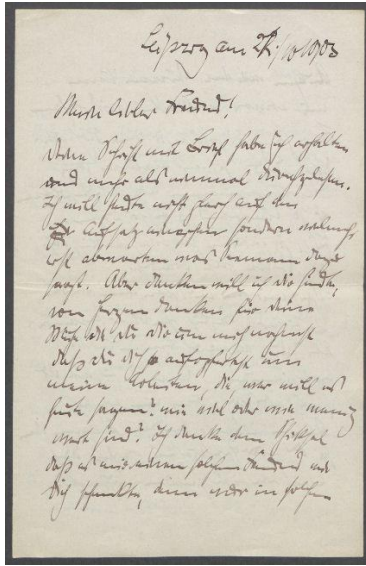 Leipzig am 27/10 1903
Mein lieber Freund!
Deine Schrift mit Brief habe ich erhalten
und mehr als einmal durchgelesen.
Ich will heute nicht gleich auf den
Aufsatz sondern vielmehr
erst abwarten was Seemann dazu
sagt. Aber danken will ich die heute,
von Herzen danken für deine
daß du dich so aufopferst um
meine Arbeiten, die was will ich
heute sagen? wie viel oder wie wenig
werth sind? Ich danke dem Schicksal
daß es mir einen solchen Freund wie
Dich schenkte, denn in solchen